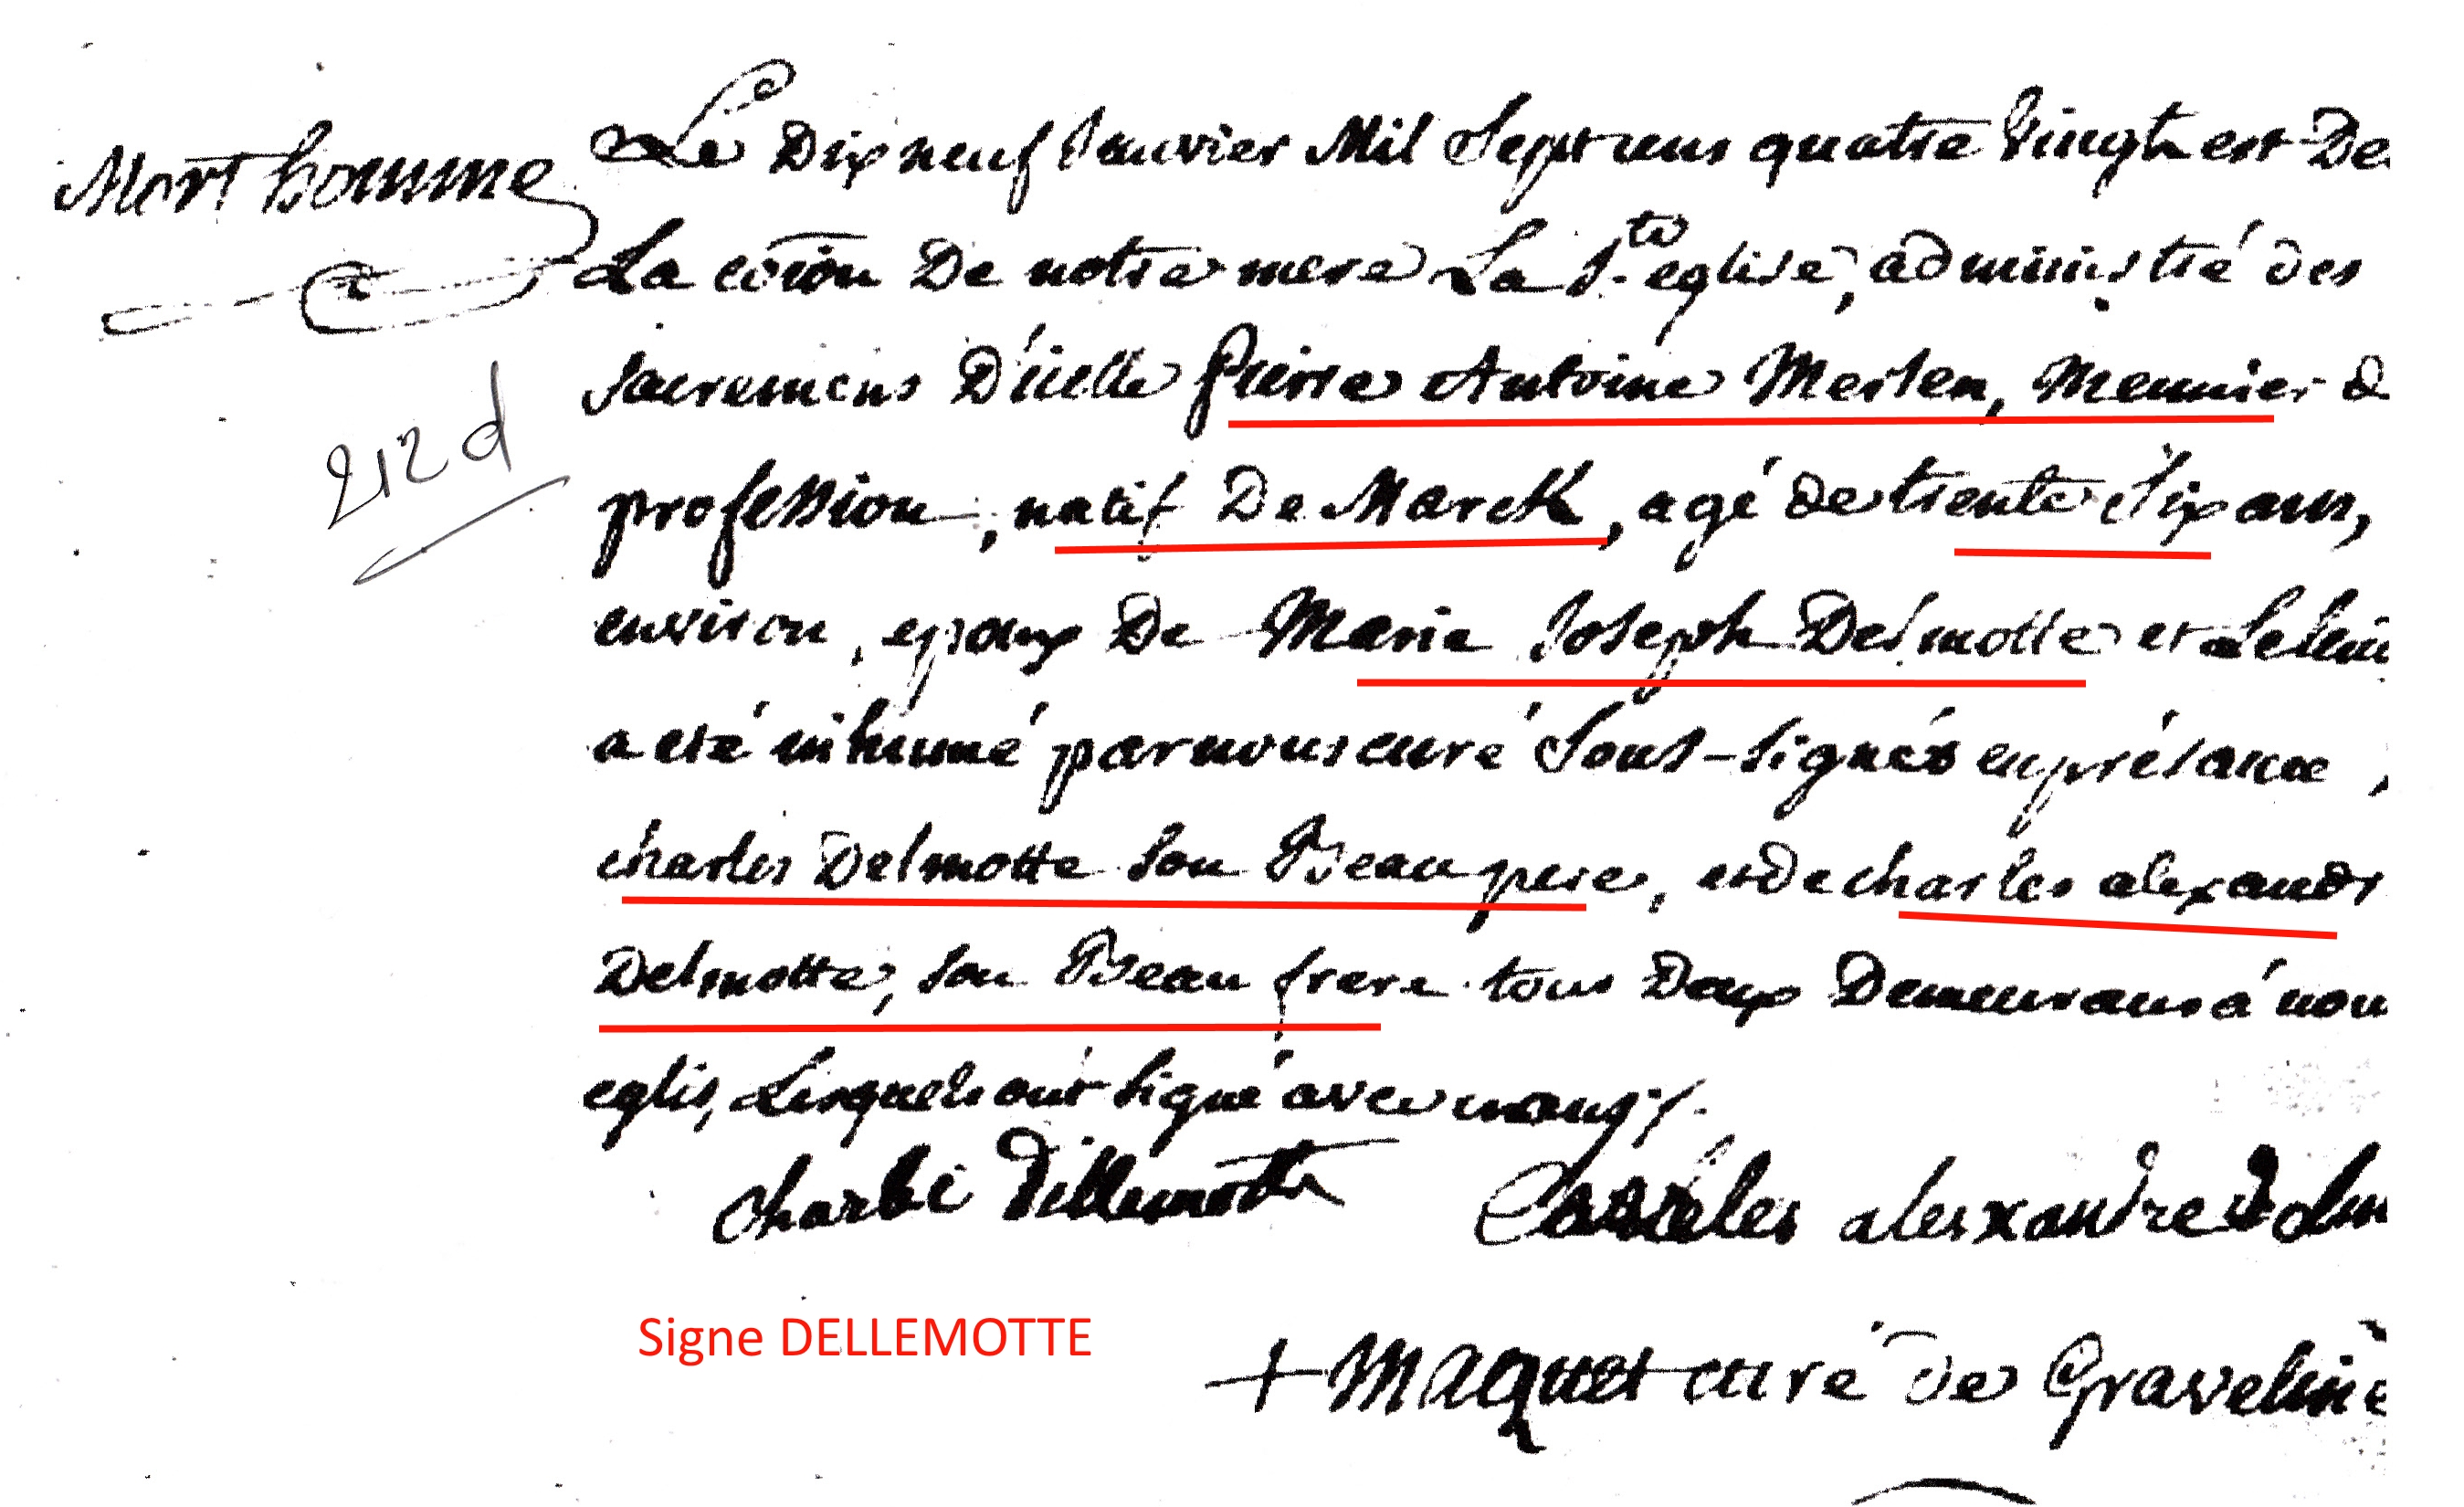 Mort homme
212d
Le Dix neuf Janvier Mil Sept cens quatre Vingt est De
La cõion De notre mere La Ste eglise, administré des
sacremens D'icelle pierre Antoine Merlen, Meunier d
profession, natif De Marck, agé de trente Six ans,
environ, epoux De Marie Joseph Delmotte et Le
a eté inhumé par nous curé Sous-signés en présance,
charles Delmotte son Beau pere, et de charles alexandr
Delmotte, son Beau frere tous Deux Demeurans à nou
eglis, Lesquels ont signé avec nous ./.
Charle Dellemotte Charles alexandre delm
Signe DELLEMOTTE
+ Maquet curé de Graveline